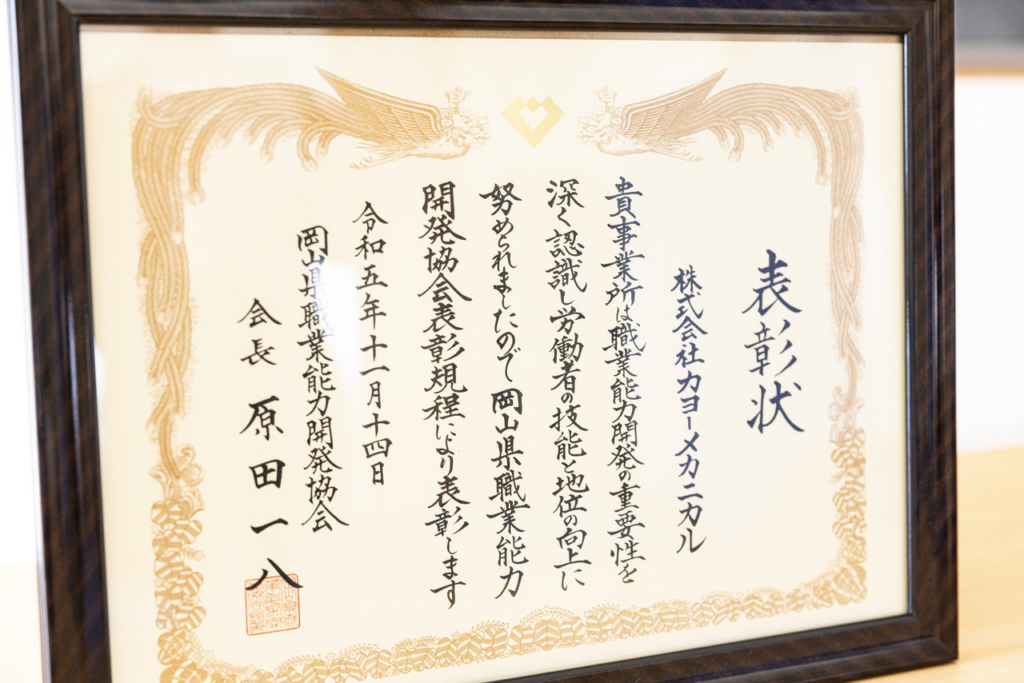 表彰状
株式会社カヨーメカニカル
貴事業所は職業能力開発の重要性を
深く認識し労働者の技能と地位の向上に
努められましたので岡山県職業能力
開発協会表彰規程により表彰します
令和五年十一月十四日
岡山県職業能力開発協会
会長 原田一八